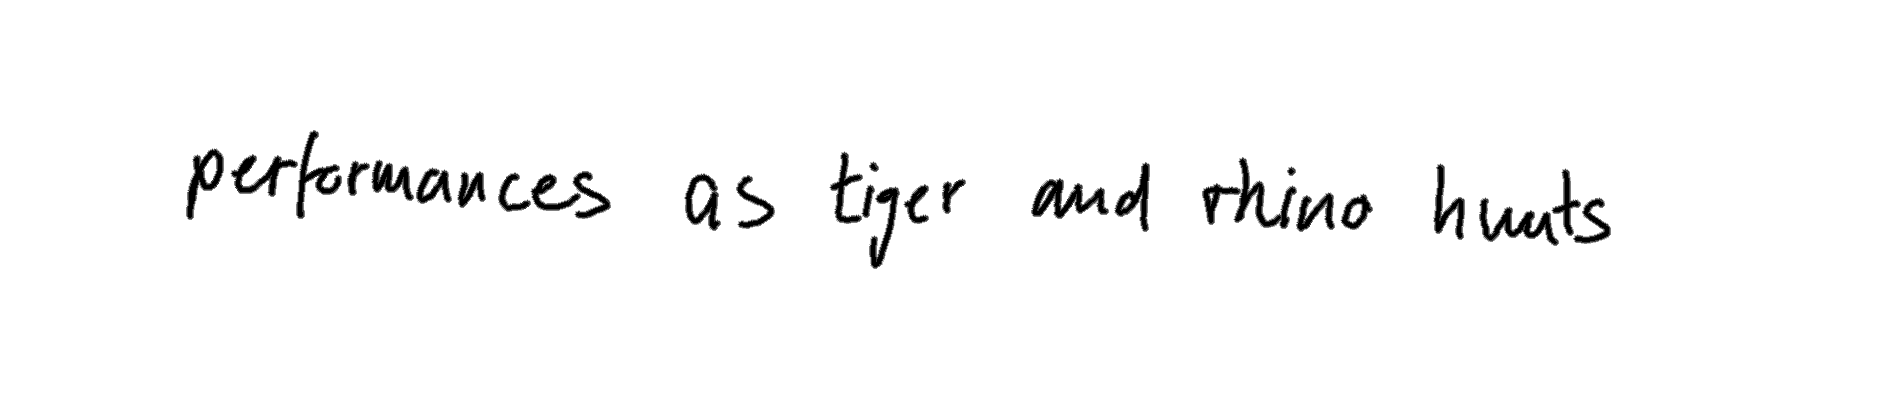 performances as tiger and rhino hunts